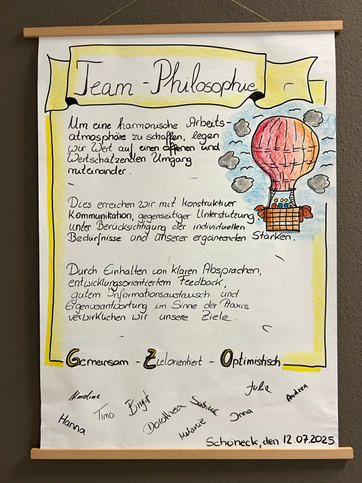 Team-Philosophie
Um eine harmonische Arbeits-
atmosphäre zu schaffen, legen
wir Wert auf einen offenen und
Wertschätzenden Umgang
miteinander.
Dies erreichen wir mit konstruktiver
Kommunikation, gegenseitiger Unterstützung
unter Berücksichtigung der individuellen
Bedürfnisse und unserer ergänzenden Stärken.
Durch Einhalten von klaren Absprachen,
entwicklungsorientiertem Feedback,
gutem Informationsaustausch und
Eigenverantwortung im Sinne der Praxis
verwirklichen wir unsere Ziele.
Gemeinsam - Zielorientiert - Optimistisch
Julia Andrea
Timo Birgit Dorothea Sabine
Hanna Melanie Irina
Schöneck, den 12.07.2025